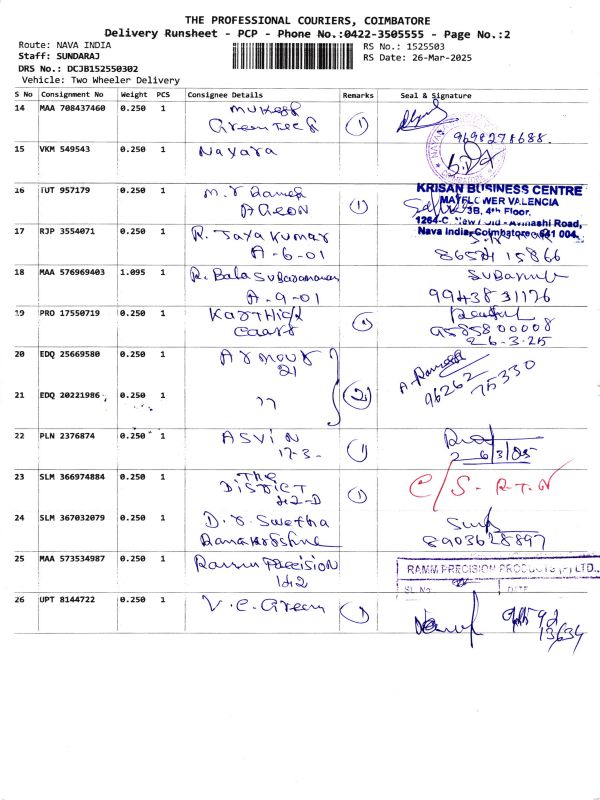 THE PROFESSIONAL COURIERS, COIMBATORE
Delivery Runsheet - PCP - Phone No.:0422-3505555 - Page No.:2
Route: NAVA INDIA
RS No.: 1525503
Staff: SUNDARAJ
RS Date: 26-Mar-2025
DRS No.: DCJB152550302
Vehicle: Two Wheeler Delivery
S No Consignment No Weight PCS Consignee Details Remarks Seal & Signature
14 MAA 708437460 0.250 1 Mukesh
Greentech 1
9698278688
15 VKM 549543 0.250 1 Nayara
16 TUT 957179 0.250 1 M.r Ganesh
Ageon 1
KRISAN BUSINESS CENTRE
MAYFLOWER VALENCIA
3B, 4th Floor.
1264-C, New / Old - Avinashi Road,
Nava India, Coimbatore - 641 004.
17 RJP 3554071 0.250 1 R. Jaya Kumar
A-6-01
18 MAA 576969403 1.095 1 R. Bala Subaramanian
A-9-01
9943831126
19 PRO 17550719 0.250 1 Karthick
Caars
9585800008
26-3-25
20 EDQ 25669580 0.250 1 Armour
21
96262 75330
21 EDQ 20221986 0.250 1 " 2
22 PLN 2376874 0.250 1 ASVIN
17-3- 1
23 SLM 366974884 0.250 1 The
District
42-D 1
C/S - R.T.N
24 SLM 367032079 0.250 1 D.r Swetha
Ramakrishna
8903628897
25 MAA 573534987 0.250 1 Ramm Precision
142
RAMM PRECISION PRODUCTS (P) LTD.,
SL No DATE
26 UPT 8144722 0.250 1 V.C. Green 1